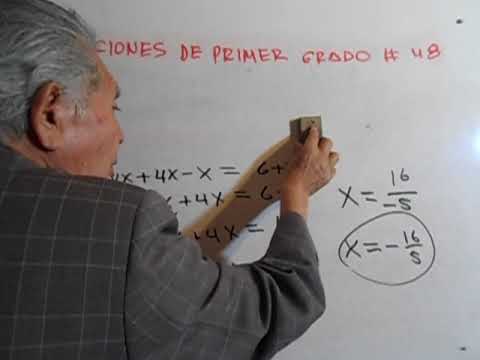 CIONES DE PRIMER GRADO # 48
4X+4X-X = 6+
X+4X = 6
+4X =
X = 16/-5
X = -16/5